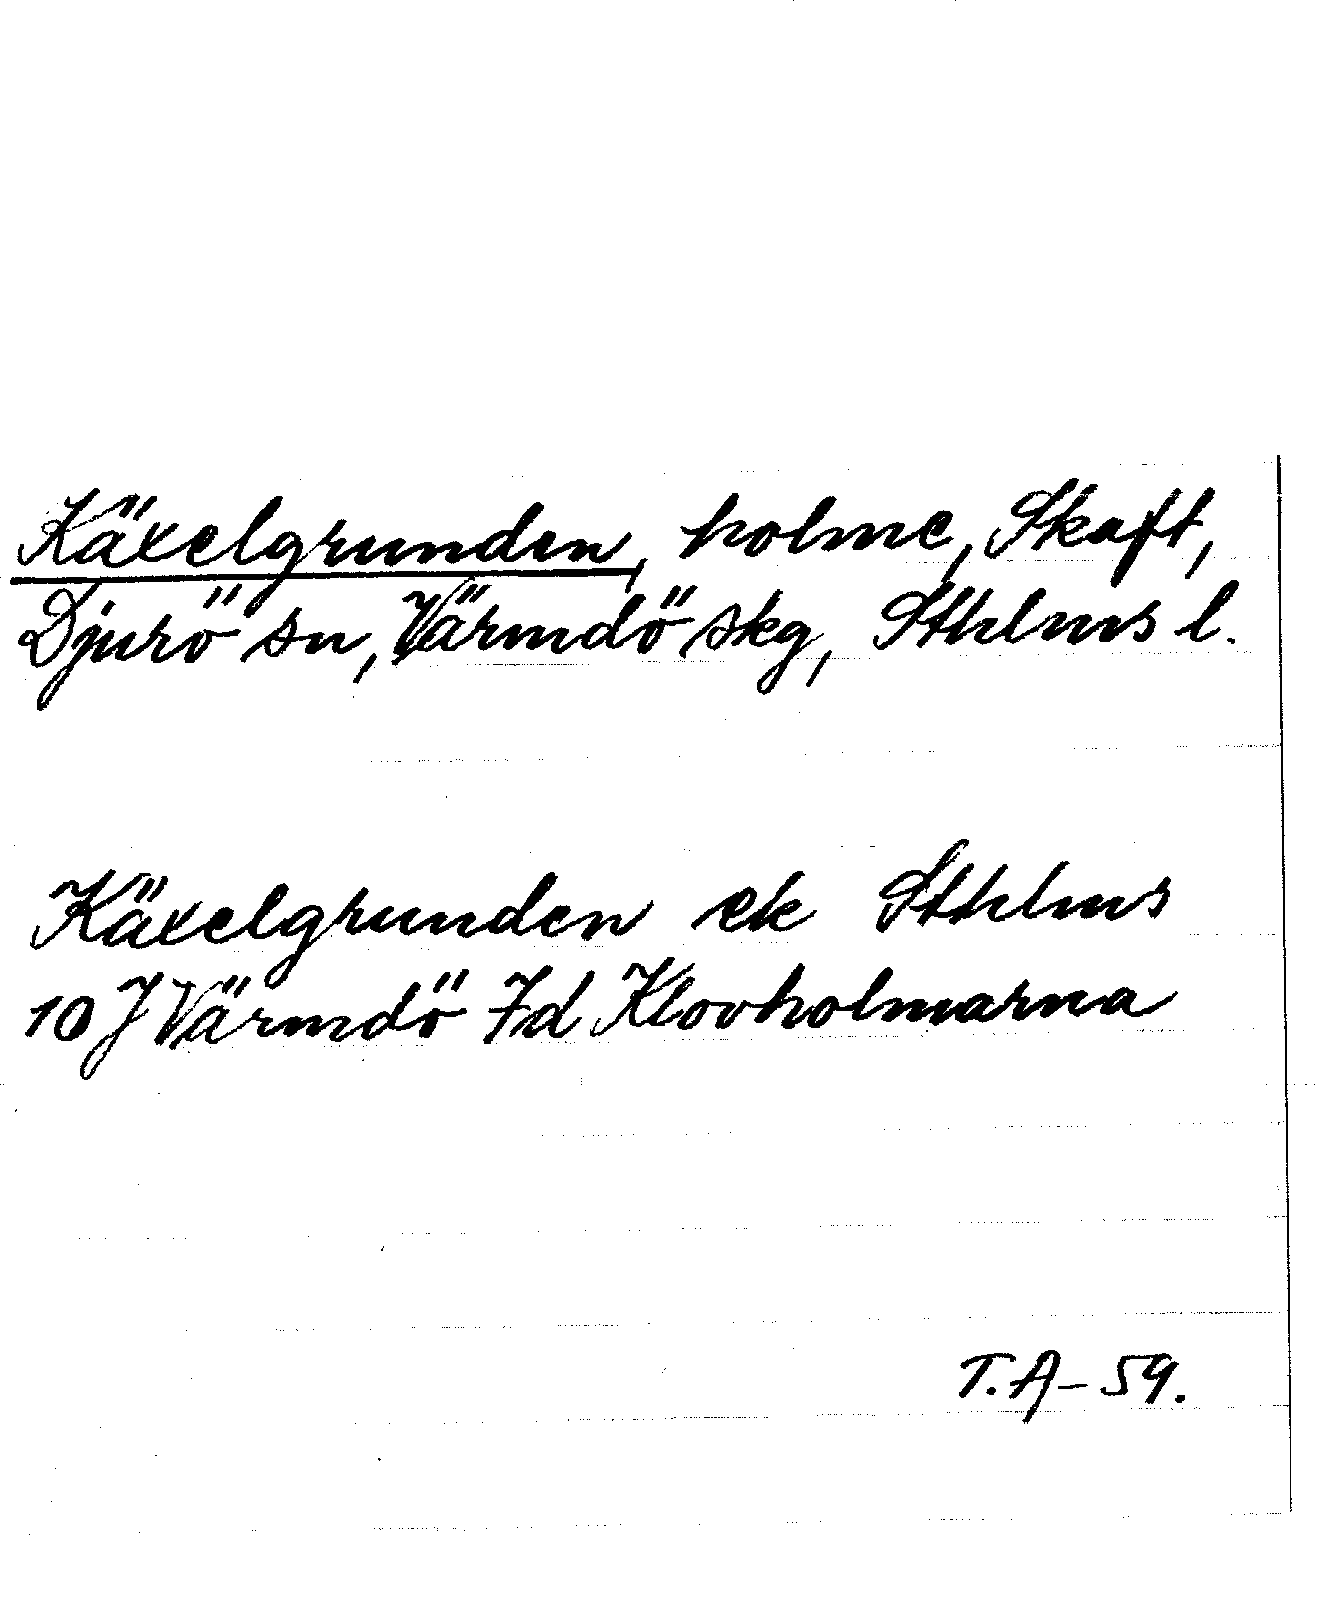 Käxelgrunden, holme, Skaft,
Djurö sn, Värmdö skg, Sthlms l.
Käxelgrunden ek Sthlms
10 J Värmdö 7d Klovholmarna
T.A-59.